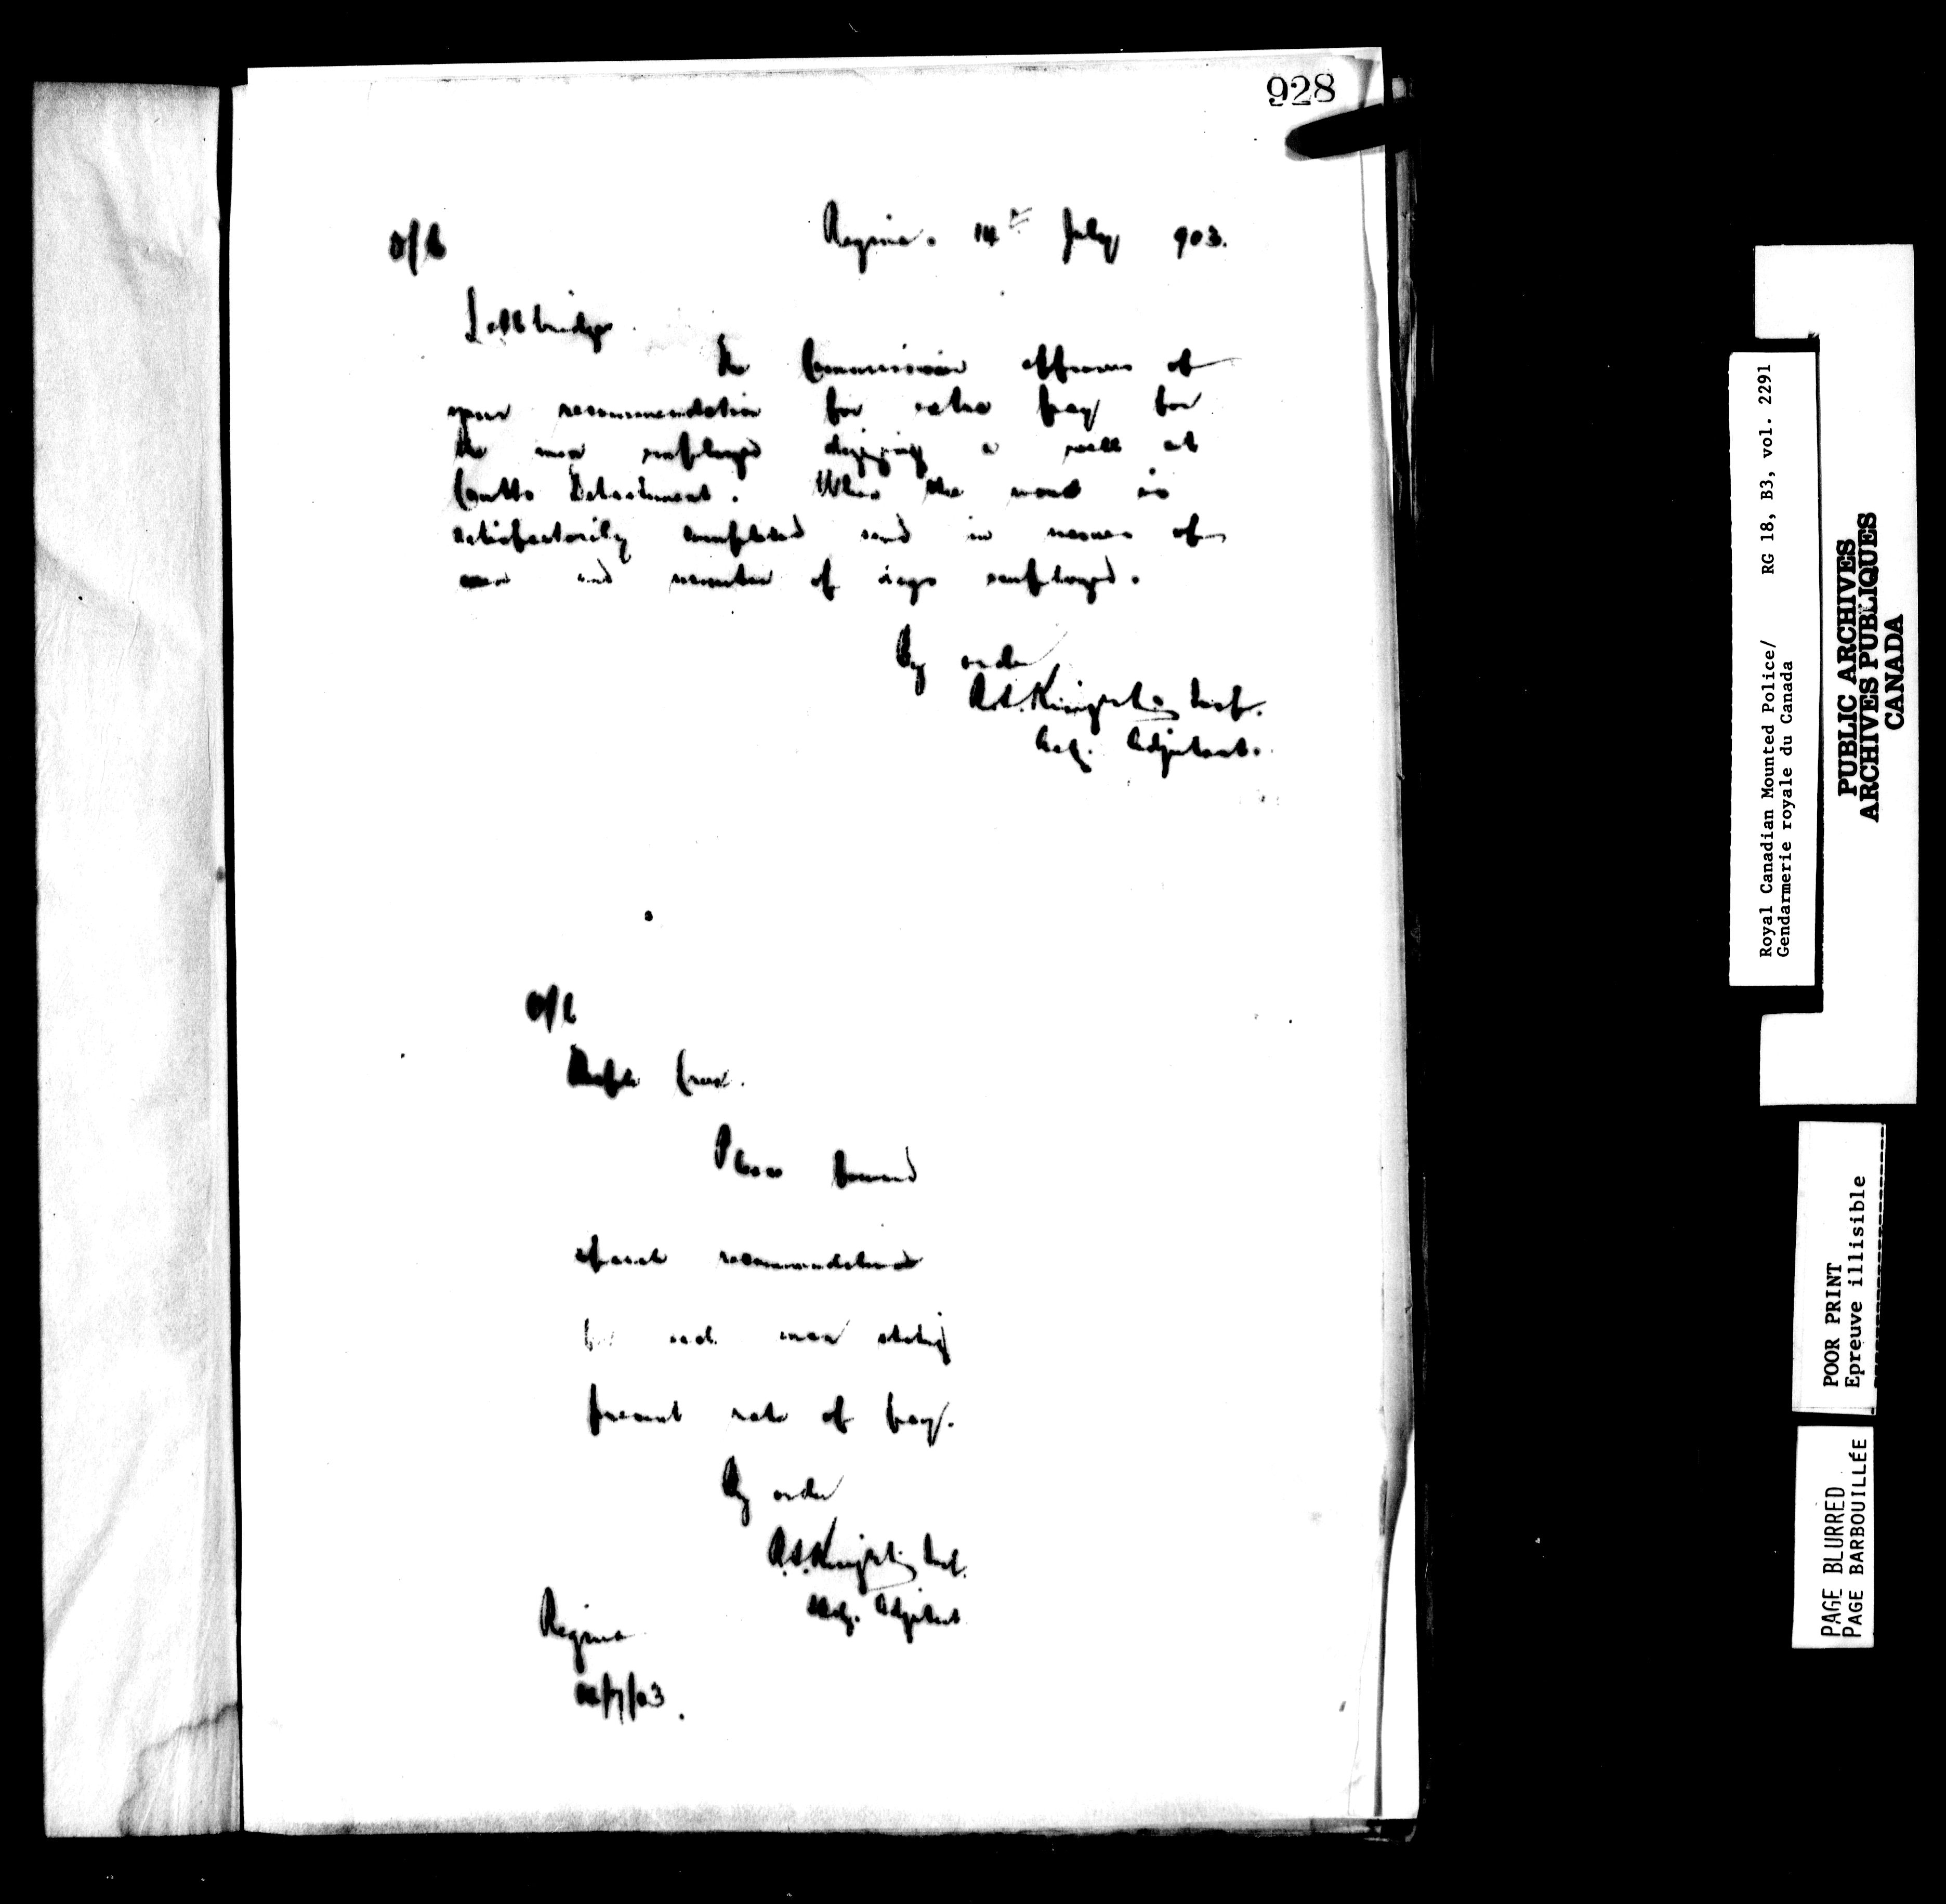 928
O/C Regina. 14th July 903.
Lethbridge.
The Commissioner approves of
your recommendation for extra pay for
the men employed digging a well at
Coutts Detachment. When the work is
satisfactorily completed send in names of
men and number of days employed.
By order
Insp.
Actg. Adjutant.
O/C
Maple Creek.
Please forward
separate recommendations
for each man stating
present rate of pay.
By order
Insp.
Actg. Adjutant
Regina
14/7/03.
Royal Canadian Mounted Police/ RG 18, B3, vol. 2291
Gendarmerie royale du Canada
PUBLIC ARCHIVES
ARCHIVES PUBLIQUES
CANADA
POOR PRINT
Epreuve illisible
PAGE BLURRED
PAGE BARBOUILLÉE